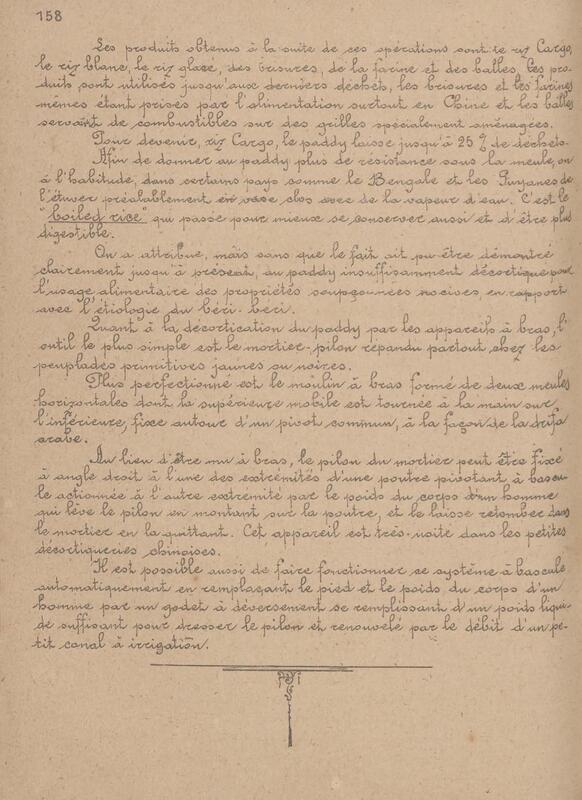 158
Les produits obtenus à la suite de ces opérations sont le riz Cargo,
le riz blanc, le riz glacé, des brisures, de la farine et des balles. Ces pro-
duits sont utilisés jusqu'aux derniers déchets, les brisures et les farines
mêmes étant prisés par l'alimentation surtout en Chine et les balles
servant de combustibles sur des grilles spécialement aménagées.
Pour devenir, riz Cargo, le paddy laisse jusqu'à 25 % de déchets.
Afin de donner au paddy plus de résistance sous la meule, on
a l'habitude, dans certains pays comme le Bengale et les Guyanes de
l'étuver préalablement en vase clos avec de la vapeur d'eau. C'est le
"boiled rice" qui passe pour mieux se conserver aussi et d'être plus
digestible.
On a attribué, mais sans que le fait ait pu être démontré
clairement jusqu'à présent, au paddy insuffisamment décortiqué pour
l'usage alimentaire des propriétés soupçonnées nocives, en rapport
avec l'étiologie du béri-beri.
Quant à la décortication du paddy par les appareils à bras, l'
outil le plus simple est le mortier-pilon répandu partout chez les
peuplades primitives jaunes ou noires.
Plus perfectionné est le moulin à bras formé de deux meules
horizontales dont la supérieure mobile est tournée à la main sur
l'inférieure, fixe autour d'un pivot commun, à la façon de la drifa
arabe.
Au lieu d'être mu à bras, le pilon du mortier peut être fixé
à angle droit à l'une des extrémités d'une poutre pivotant à bascu-
le actionnée à l'autre extrémité par le poids du corps d'un homme
qui lève le pilon en montant sur la poutre, et le laisse retomber dans
le mortier en la quittant. Cet appareil est très usité dans les petites
décortiqueries chinoises.
Il est possible aussi de faire fonctionner ce système à bascule
automatiquement en remplaçant le pied et le poids du corps d'un
homme par un godet à déversement se remplissant d'un poids liqui-
de suffisant pour dresser le pilon et renouvelé par le débit d'un pe-
tit canal à irrigation.